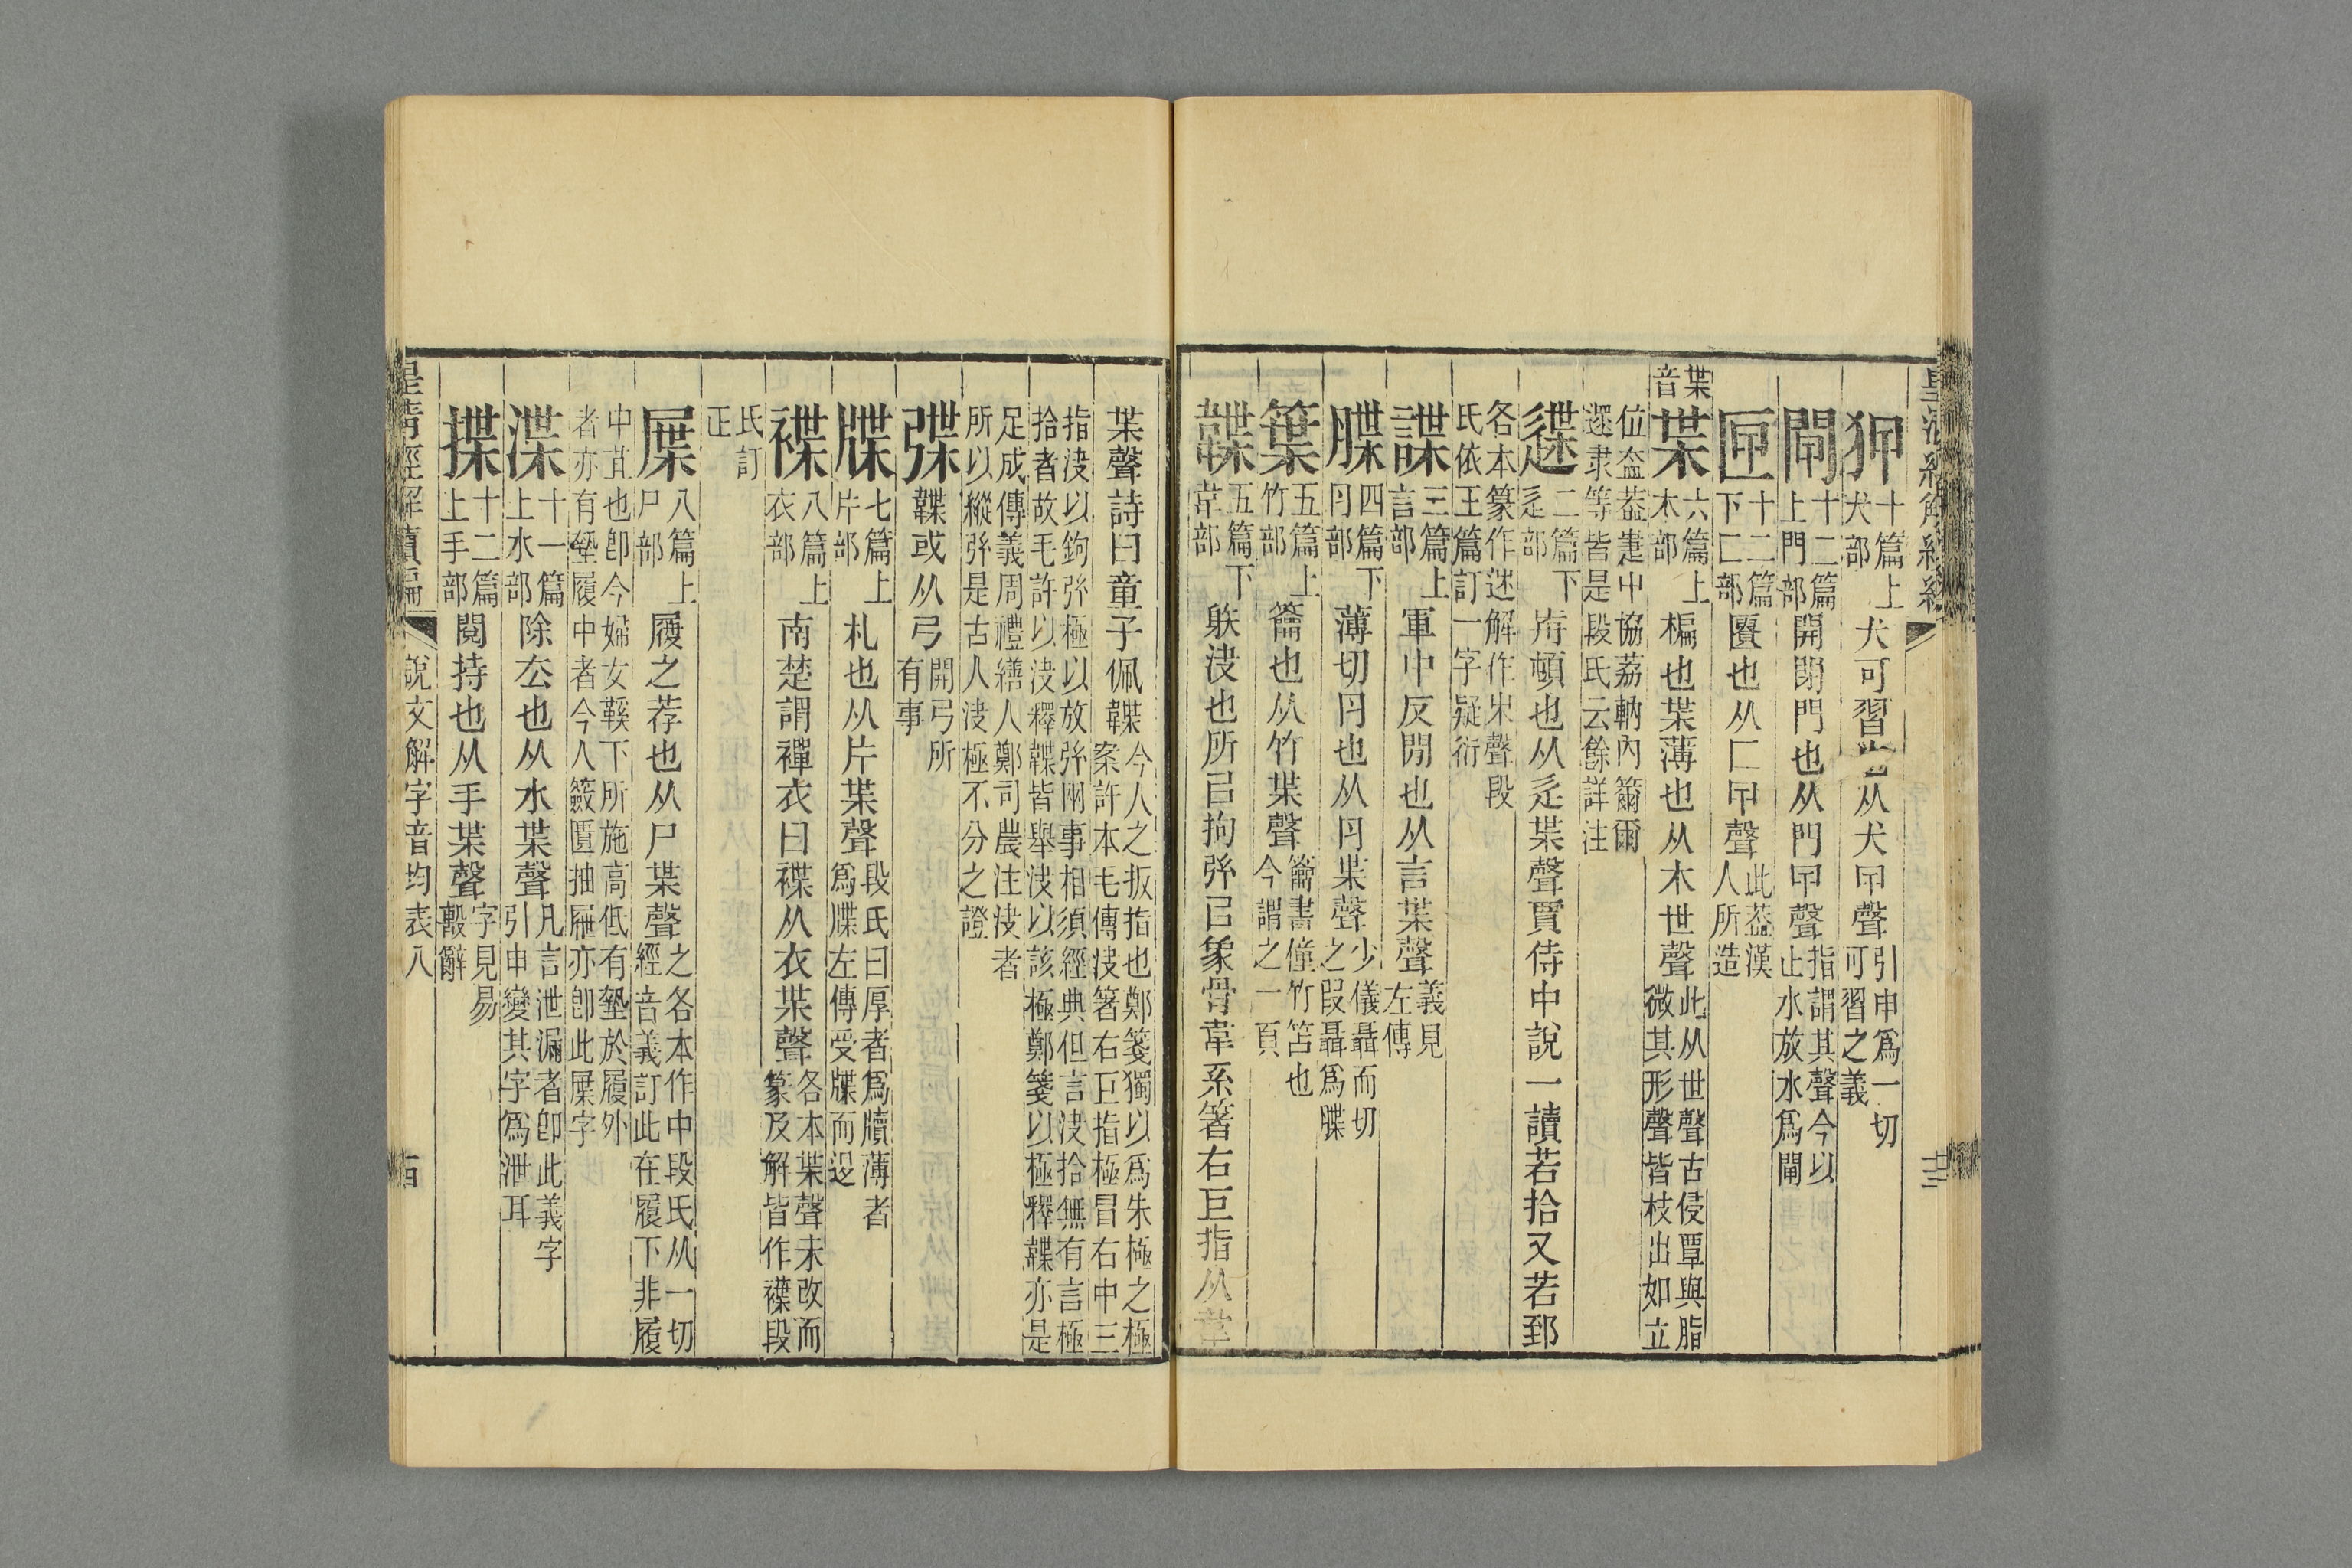 狎十篇上犬部犬可習也从犬曱聲引申爲一切可習之義
閘十二篇上門部開閉門也从門曱聲指謂其聲今以止水放水爲閘
匣十二篇下匚部匱也从匚曱聲此葢漢人所造
枼音
枼六篇上木部楄也枼薄也从木世聲此从世聲古侵覃與脂微其形聲皆枝出如立
位盇葢疌中協荔軜內籋爾遝隶等皆是段氏云餘詳注
䢡二篇下辵部㡿頓也从辵枼聲賈侍中說一讀若拾又若郅
各本篆作迣解作𡴎聲段氏依王篇訂一字疑衍
諜三篇上言部軍中反閒也从言枼聲義見左傳
牒四篇下⺼部薄切⺼也从⺼枼聲少儀聶而切之叚聶爲牒
箂五篇上竹部籥也从竹枼聲籥書僮竹笘也今謂之一頁
韘五篇下韋部躲決也所㠯拘弦㠯象骨韋系箸右巨指从韋
枼聲詩曰童子佩韘今人之扳指也鄭箋獨以爲朱極之極案許本毛傳決箸右巨指極冒右中三
指決以鉤弦極以放弦兩事相須經典但言決拾無有言極拾者故毛許以決釋韘皆舉決以該極鄭箋以極釋韘亦是
足成傳義周禮繕人鄭司農注決者所以縱弦是古人決極不分之證
弽韘或从弓開弓所有事
牒七篇上片部札也从片枼聲段氏曰厚者爲牘薄者爲牒左傳受牒而退
褋八篇上衣部南楚謂襌衣曰褋从衣枼聲各本枼聲未改而篆及解皆作襍段
氏訂正
屟八篇上尸部履之荐也从尸枼聲之各本作中段氏从一切經音義訂此在履下非履
中苴也卽今婦女鞵下所施高低有墊於履外者亦有墊履中者今人籢匱抽屜亦卽此屟字
渫十一篇上水部除厺也从水枼聲凡言泄漏者卽此義字引申變其字爲泄耳
揲十二篇上手部閱持也从手枼聲字見易毄辭
說文解字音均表八